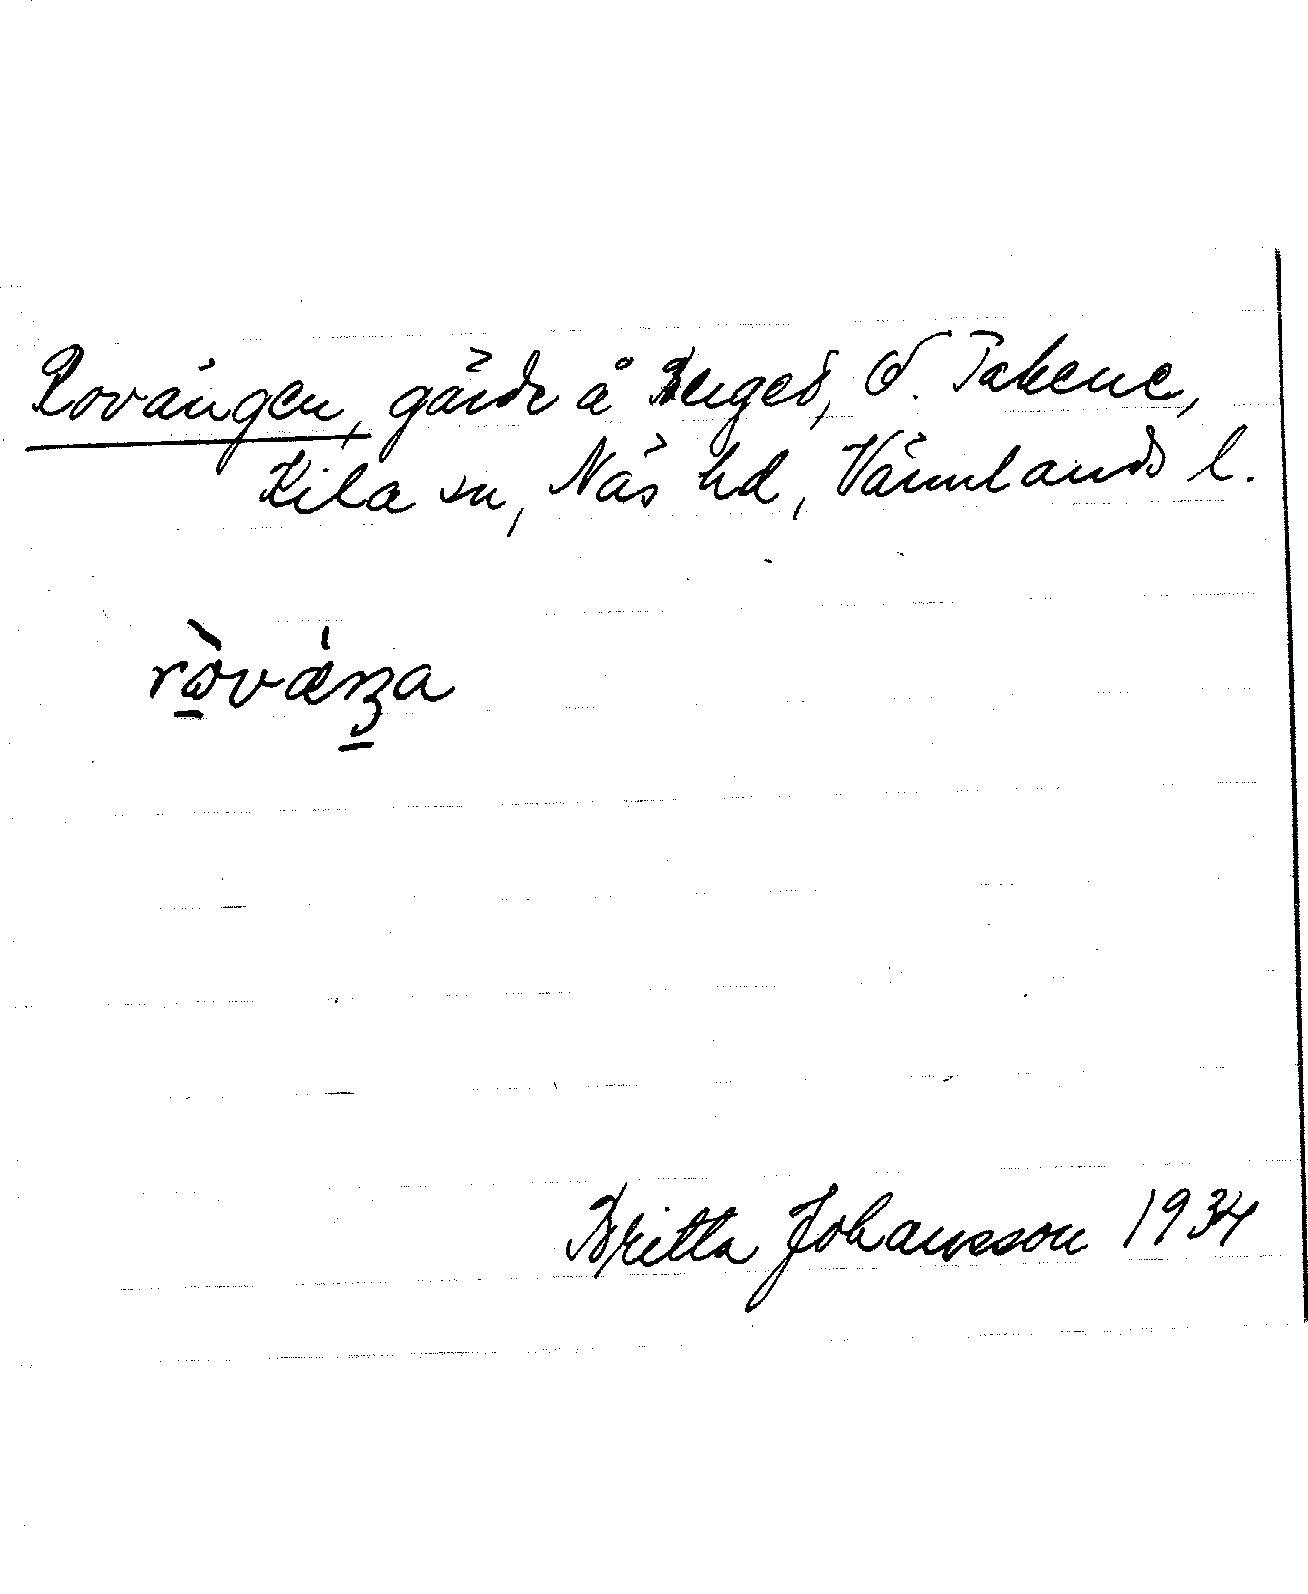 Rovängen, gärde å Berget, Ö. Takene,
Kila sn, Näs hd, Värmlands l.
rò̱vǽŋa
Britta Johansson 1934